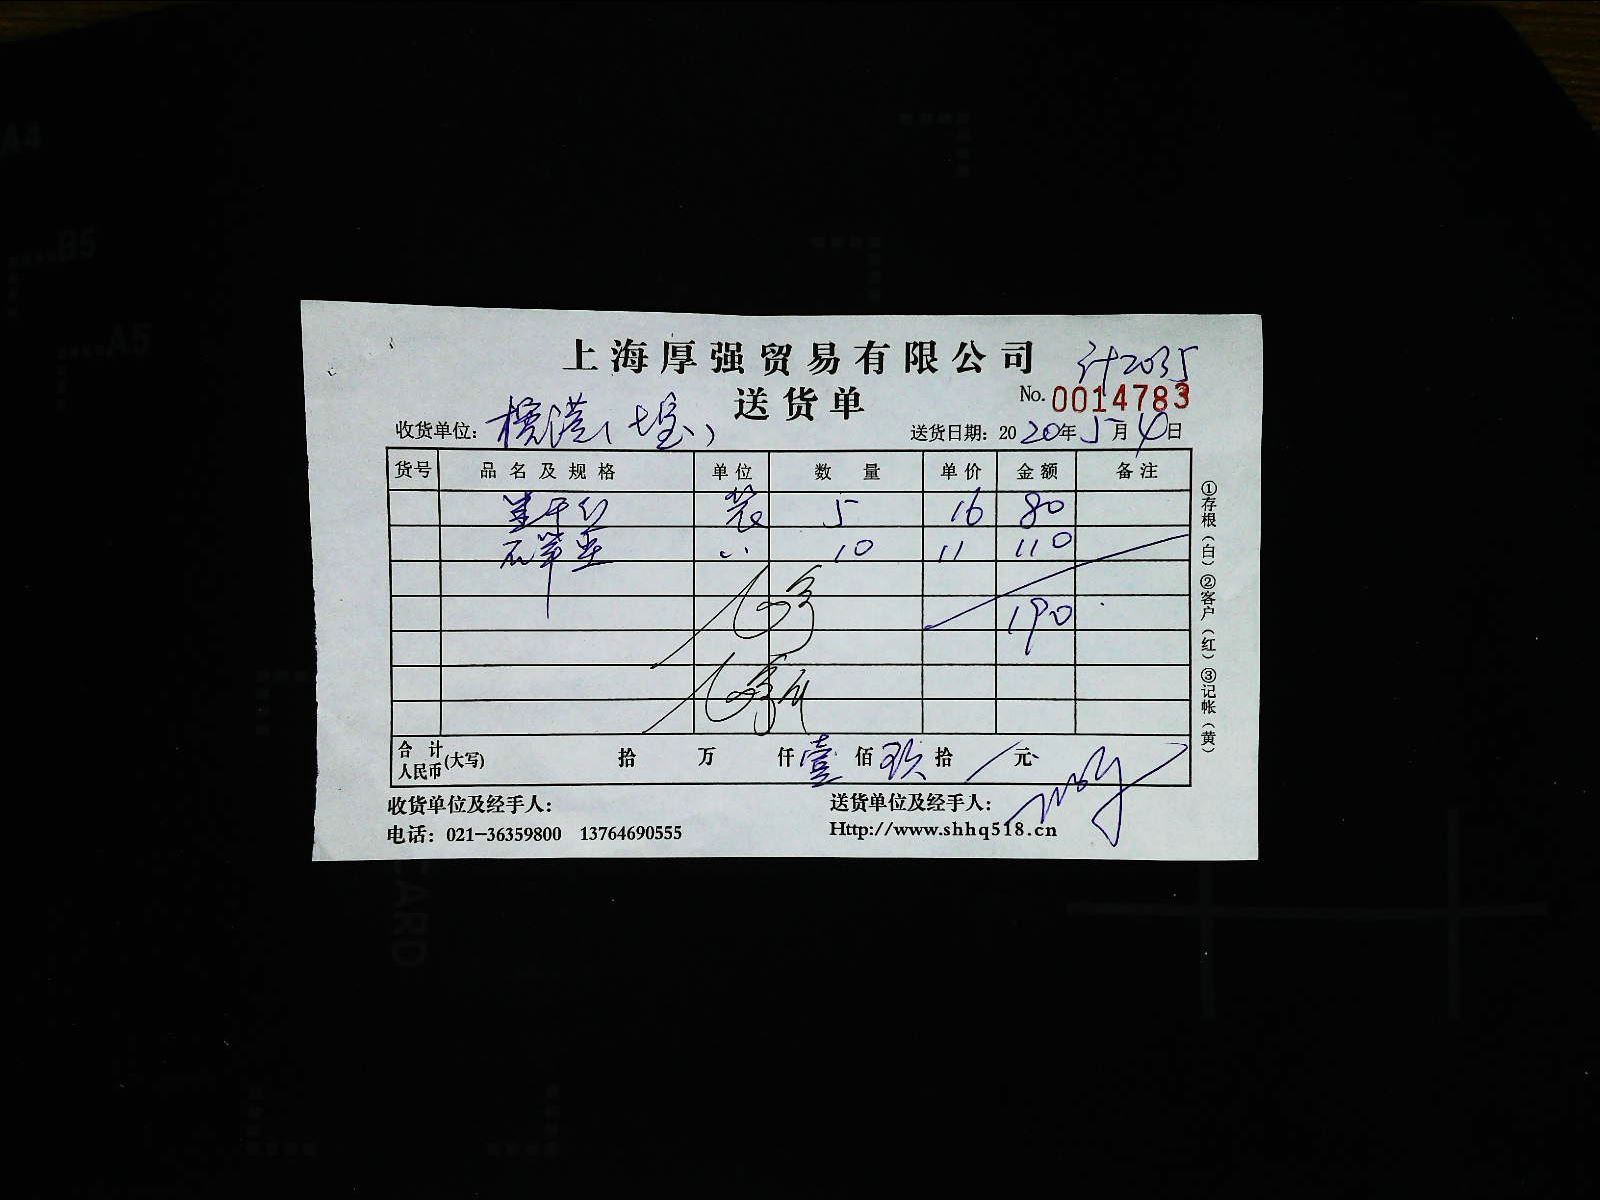 A4
B5
A5
上海厚强贸易有限公司
计2035
送货单
No. 0014783
收货单位: 横港(七宝)
送货日期: 2020年5月4日
货号 品名及规格 单位 数量 单价 金额 备注
袋 5 16 80
〃 10 11 110
190
合计人民币(大写) 拾 万 仟壹佰玖拾 元
收货单位及经手人:
送货单位及经手人:
电话: 021-36359800 13764690555
Http://www.shhq518.cn
①存根(白)②客户(红)③记帐(黄)
CARD